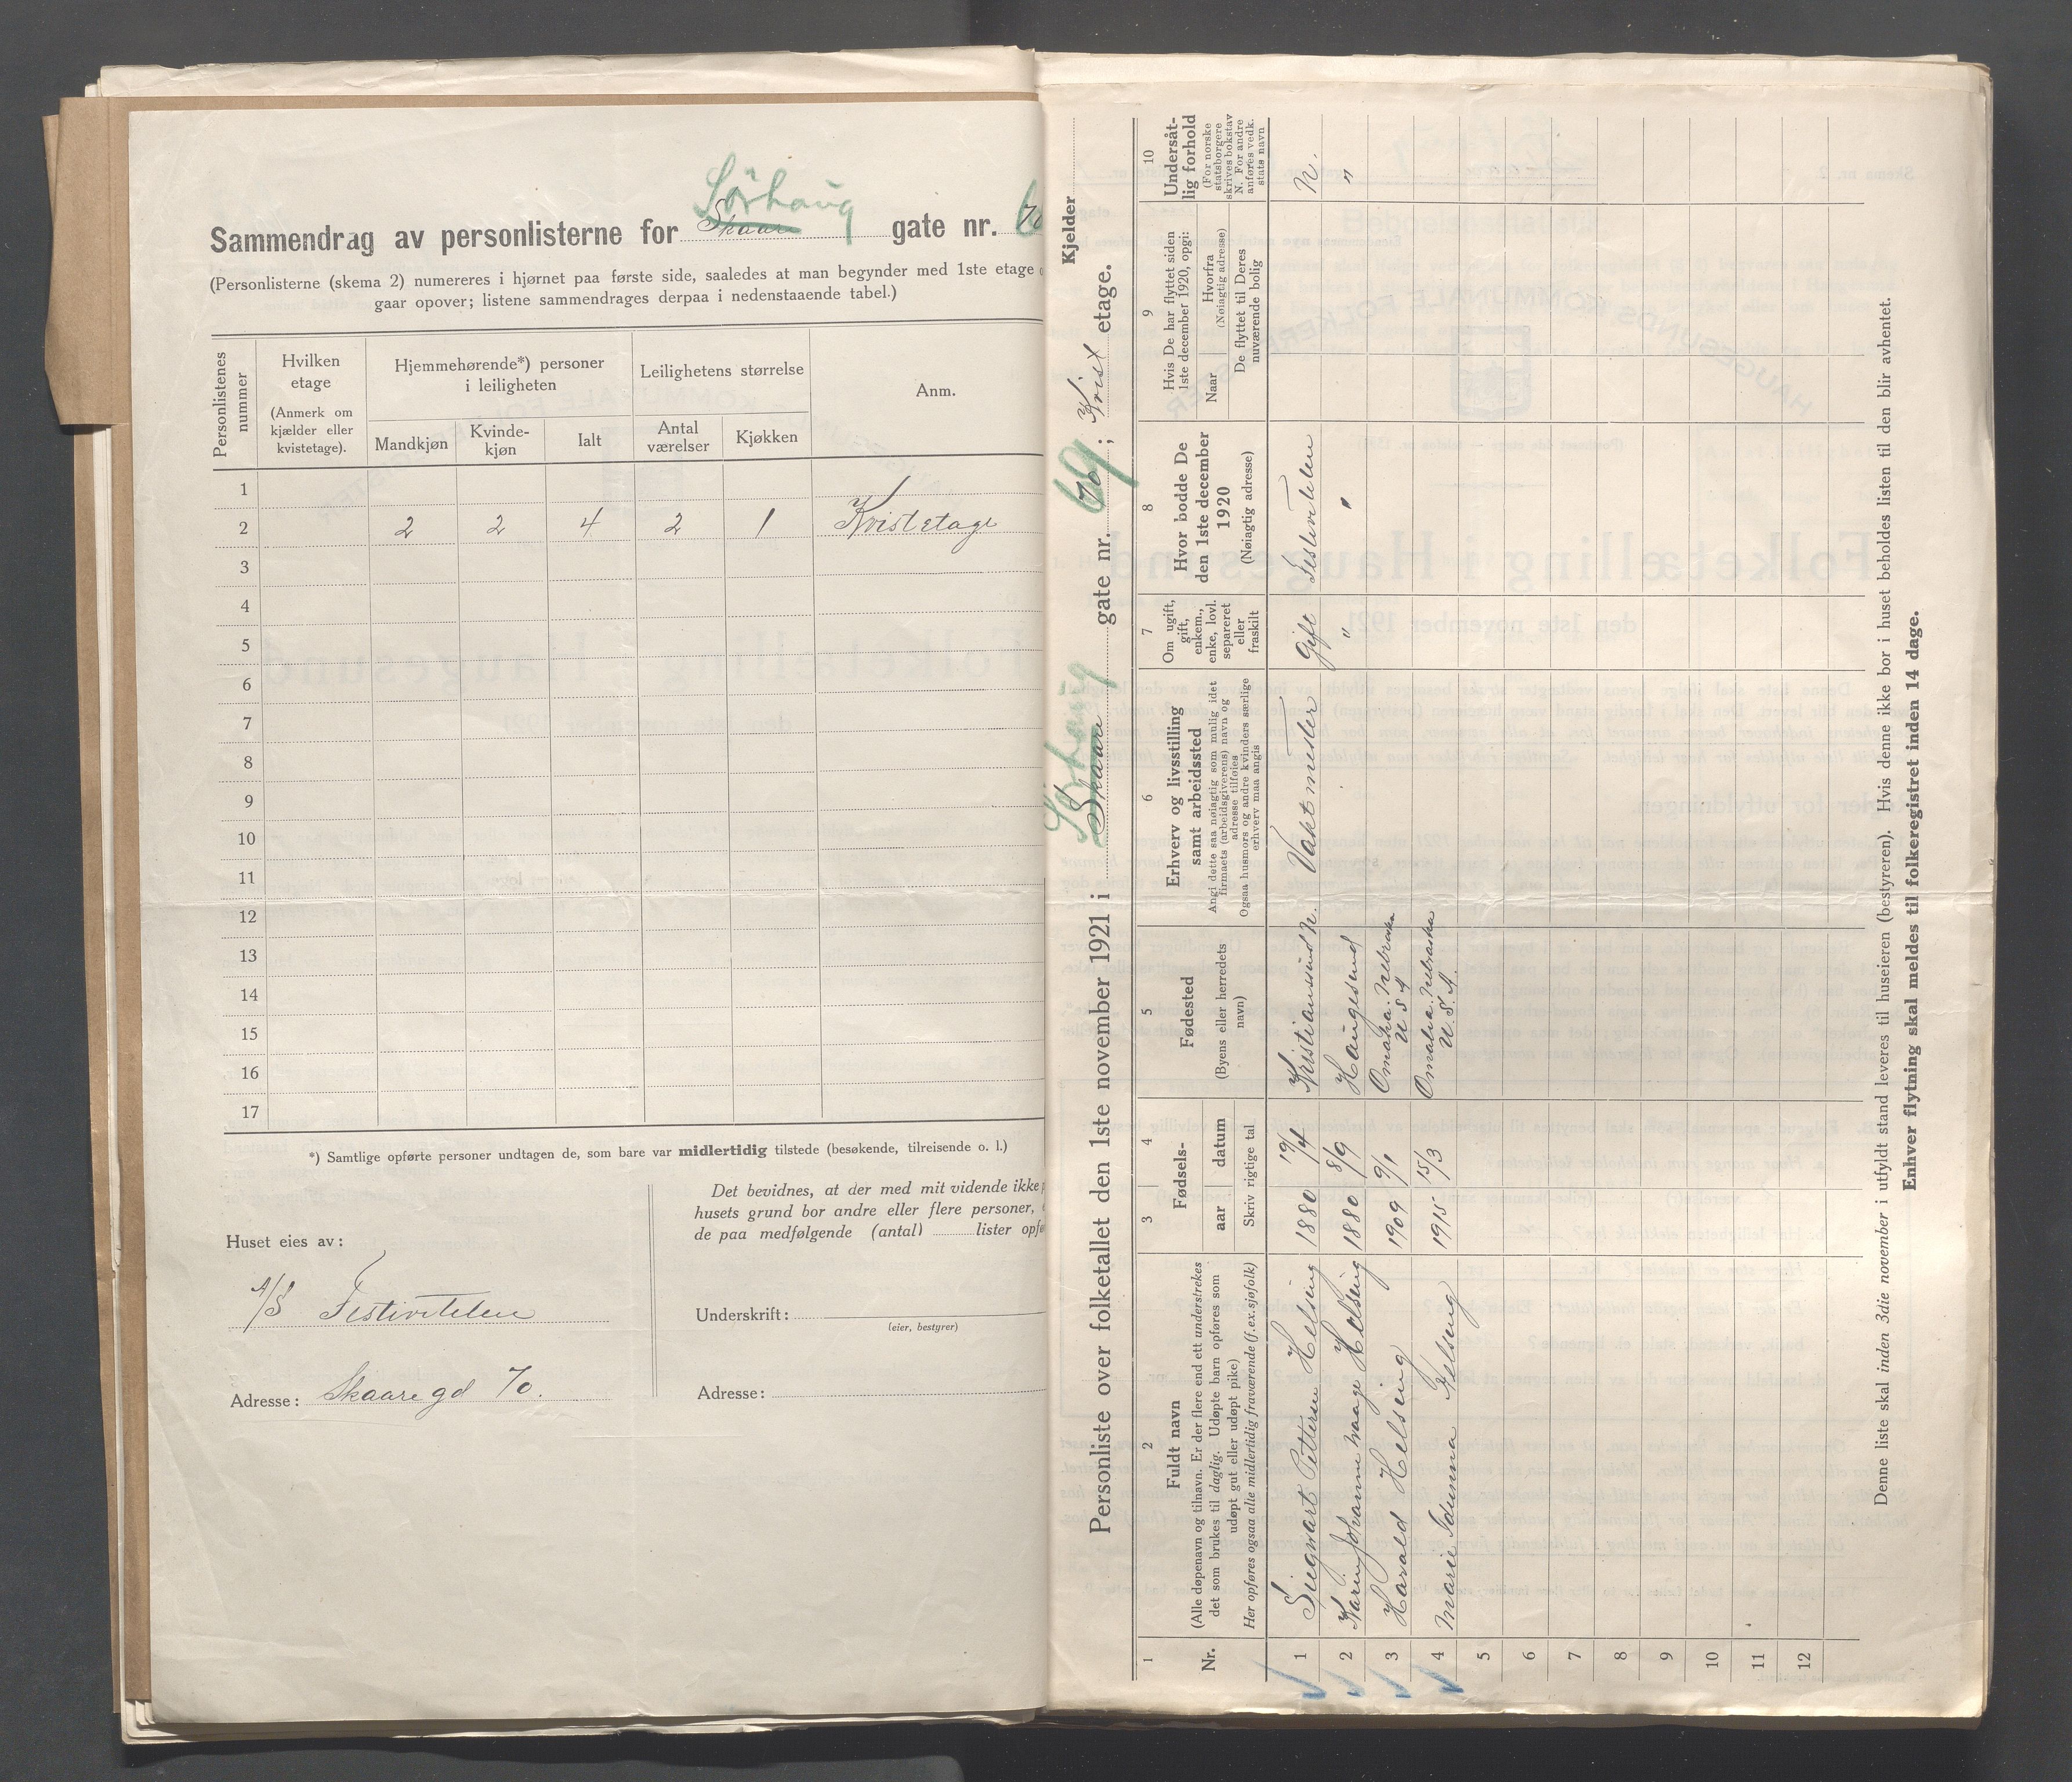 Sørhaug
Sammendrag av personlisterne for Skaare gate nr. 70
(Personlisterne (skema 2) numereres i hjørnet paa første side, saaledes at man begynder med 1ste etage
gaar opover; listene sammendrages derpaa i nedenstaaende tabel.)
Personlistenes nummer
Hvilken etage
(Anmerk om kjælder eller kvistetage).
Hjemmehørende*) personer i leiligheten
Mandkjøn
Kvinde-kjøn
Ialt
Leilighetens størrelse
Antal værelser
Kjøkken
Anm.
1
2 2 2 4 2 1 Kvistetage
3
4
5
6
7
8
9
10
11
12
13
14
15
16
17
*) Samtlige opførte personer undtagen de, som bare var midlertidig tilstede (besøkende, tilreisende o. l.)
Huset eies av:
A/S Festiviteten
Adresse: Skaaregd 70.
Det bevidnes, at der med mit vidende ikke
husets grund bor andre eller flere personer,
de paa medfølgende (antal) lister
Underskrift:
(eier, bestyrer)
Adresse:
Kjelder
Sørhaug 69
Personliste over folketallet den 1ste november 1921 i Skaare gate nr. 70; Kvist etage.
1
Nr.
2
Fuldt navn
(Alle døpenavn og tilnavn. Er der flere end ett understrekes
det som brukes til daglig. Udøpte barn opføres som
udøpt gut eller udøpt pike)
Her opføres ogsaa alle midlertidig fraværende (f.ex.sjøfolk)
3 4
Fødsels-
aar datum
Skriv rigtige tal
5
Fødested
(Byens eller herredets
navn)
6
Erhverv og livsstilling
samt arbeidssted
Angi dette saa nøiagtig som mulig idet
firmaets (arbeidsgiverens) navn og
adresse tilføies
Ogsaa husmors og andre kvinders særlige
erhverv maa angis
7
Om ugift,
gift,
enkem.,
enke, lovl.
separeret
eller
fraskilt
8
Hvor bodde De
den 1ste december
1920
(Nøiagtig adresse)
9
Hvis De har flyttet siden
1ste december 1920, opgi:
Naar
Hvorfra
(Nøiagtig adresse)
De flyttet til Deres
nuværende bolig
10
Undersåt-
lig forhold
(For norske
statsborgere
skrives bokstav
N. For andre
anføres vedk.
stats navn
1 Siegwart Pettersen Helseng 1880 19/4 Kristiansund N. Vaktmester Gift Festiviteten N.
2 Karen Johanne Waage Helseng 1880 8/9 Haugesund " " "
3 Harald Helseng 1909 9/1 Omaha. Nebraska U S A
4 Marie Idunna Helseng 1915 15/3 Omaha. Nebraska U. S. A.
5
6
7
8
9
10
11
12
Denne liste skal inden 3die november i utfyldt stand leveres til huseieren (bestyreren). Hvis denne ikke bor i huset beholdes listen til den blir avhentet.
Enhver flytning skal meldes til folkeregistret inden 14 dage.